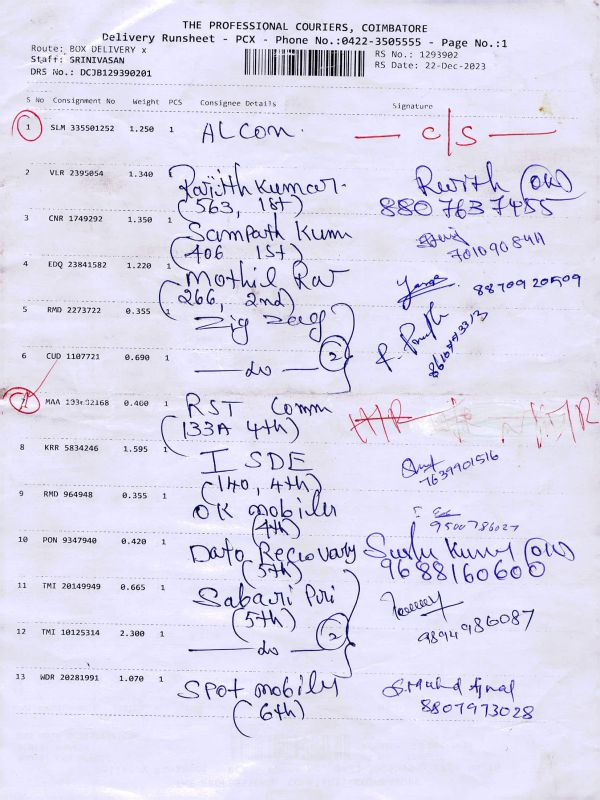 THE PROFESSIONAL COURIERS, COIMBATORE
Delivery Runsheet - PCX - Phone No.:0422-3505555 - Page No.:1
Route: BOX DELIVERY x
RS No.: 1293902
Staff: SRINIVASAN
RS Date: 22-Dec-2023
DRS No.: DCJB129390201
S No Consignment No Weight PCS Consignee Details Signature
1 SLM 335501252 1.250 1 ALCON. C/S
2 VLR 2395054 1.340 Rajith Kumar.
(563, 1st) 8807637455
3 CNR 1749292 1.350 1 Sampath Kum
(406 1st) 7010908411
4 EDQ 23841582 1.220 1 Mothil Rar
(266, 2nd) 8870920509
5 RMD 2273722 0.355 1 Zig Zag
6 CUD 1107721 0.690 1 do 2
MAA 0.400 1 RST Comm
(133A 4th)
8 KRR 5834246 1.595 1 I SDE
(140, 4th) 7639901516
9 RMD 964948 0.355 1 OK mobiles
(4th) 9500786027
10 PON 9347940 0.420 1 Data Reciovary
(5th) 9688160600
11 TMI 20149949 0.665 1 Sabari Piri
(5th) 9894986087
12 TMI 10125314 2.300 1 do 2
13 WDR 20281991 1.070 1 Spot mobiles
(6th) 8807973028